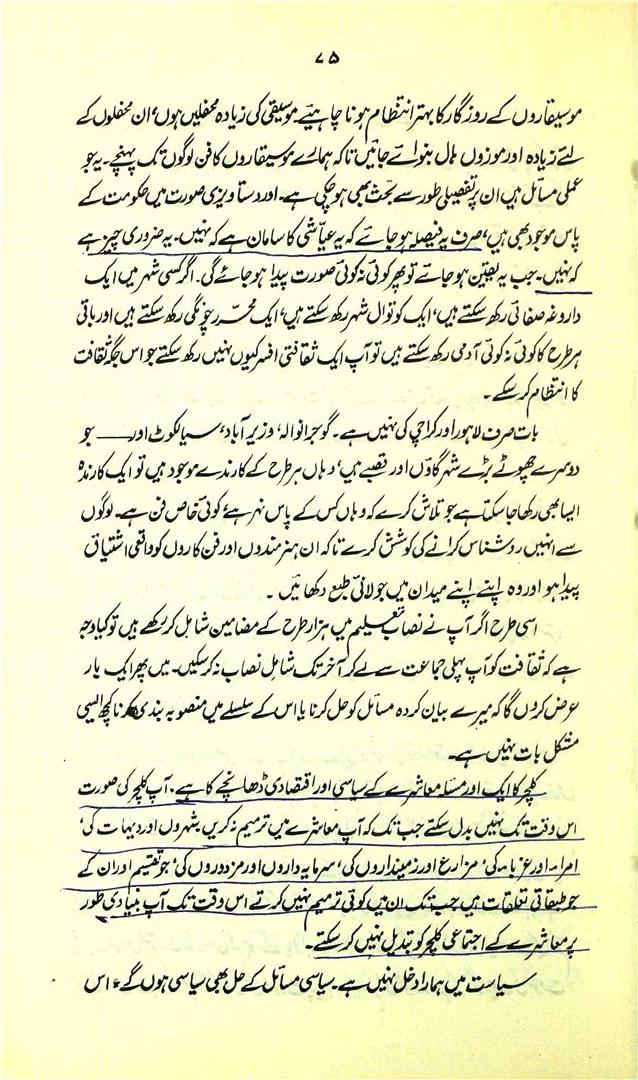 ۷۵
موسیقاروں کے روزگار کا بہتر انتظام ہونا چاہیئے۔ موسیقی کی زیادہ محفلیں ہوں، ان محفلوں کے
لئے زیادہ اور موزوں ہال بنوائے جائیں تاکہ ہمارے موسیقاروں کا فن لوگوں تک پہنچے۔ یہ جو
عملی مسائل ہیں ان پر تفصیلی طور سے بحث بھی ہو چکی ہے۔ اور دستاویزی صورت میں حکومت کے
پاس موجود بھی ہیں، صرف یہ فیصلہ ہو جائے کہ یہ عیاشی کا سامان ہے کہ نہیں۔ یہ ضروری چیز ہے
کہ نہیں۔ جب یہ یقین ہو جائے تو پھر کوئی نہ کوئی صورت پیدا ہو جائے گی۔ اگر کسی شہر میں ایک
داروغہ صفائی رکھ سکتے ہیں، ایک کوتوال شہر رکھ سکتے ہیں، ایک محرّر چونگی رکھ سکتے ہیں اور باقی
ہر طرح کا کوئی نہ کوئی آدمی رکھ سکتے ہیں تو آپ ایک ثقافتی افسر کیوں نہیں رکھ سکتے جو اس جگہ ثقافت
کا انتظام کر سکے۔
بات صرف لاہور اور کراچی کی نہیں ہے۔ گوجرانوالہ، وزیر آباد، سیالکوٹ اور —— جو
دوسرے چھوٹے بڑے شہر گاؤں اور قصبے ہیں، وہاں ہر طرح کے کارندے موجود ہیں تو ایک کارندہ
ایسا بھی رکھا جا سکتا ہے جو تلاش کرے کہ وہاں کس کے پاس ہنر ہے، کوئی خاص فن ہے۔ لوگوں
سے انہیں روشناس کرانے کی کوشش کرے تاکہ ان ہنرمندوں اور فن کاروں کو واقعی اشتیاق
پیدا ہو اور وہ اپنے اپنے میدان میں جولانیٔ طبع دکھائیں۔
اسی طرح اگر آپ نے نصاب تعلیم میں ہزار طرح کے مضامین شامل کر رکھے ہیں تو کیا وجہ
ہے کہ ثقافت کو آپ پہلی جماعت سے لے کر آخر تک شامل نصاب نہ کر سکیں۔ میں پھر ایک بار
عرض کروں گا کہ میرے بیان کردہ مسائل کو حل کرنا یا اس کے سلسلے میں منصوبہ بندی کرنا کچھ ایسی
مشکل بات نہیں ہے۔
کلچر کا ایک اور مسئلہ معاشرے کے سیاسی اور اقتصادی ڈھانچے کا ہے۔ آپ کلچر کی صورت
اس وقت تک نہیں بدل سکتے جب تک کہ آپ معاشرے میں ترمیم نہ کریں، شہروں اور دیہات کی،
امراء اور غرباء کی، مزارع اور زمینداروں کی، سرمایہ داروں اور مزدوروں کی، جو تقسیم اور ان کے
جو طبقاتی تعلقات ہیں جب تک ان میں کوئی ترمیم نہیں کرتے اس وقت تک آپ بنیادی طور
پر معاشرے کے اجتماعی کلچر کو تبدیل نہیں کر سکتے۔
سیاست میں ہمارا دخل نہیں ہے۔ سیاسی مسائل کے حل بھی سیاسی ہوں گے، اس